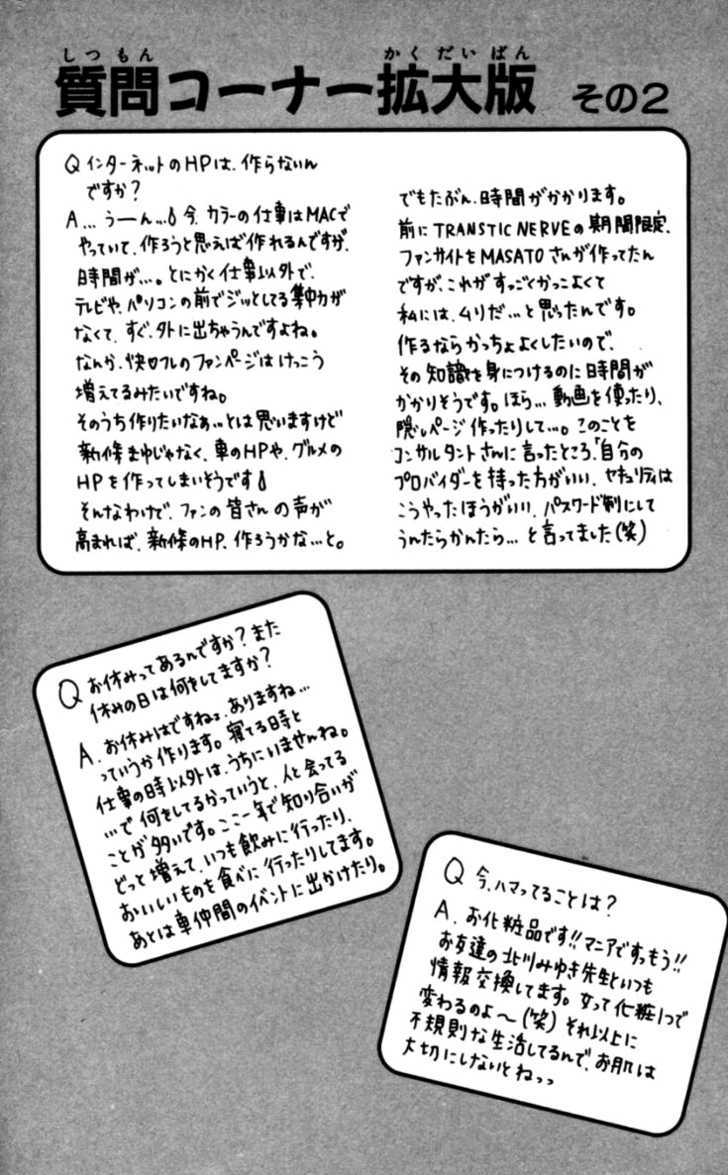 しつもん かくだいばん
質問コーナー拡大版 その2
Q インターネットのHPは、作らないん
ですか?
A…うーん… 今、カラーの仕事はMACで
やっていて、作ろうと思えば作れるんですが、
時間が…。とにかく仕事以外で、
テレビや、パソコンの前でジッとしてる集中力が
なくて、すぐ、外に出ちゃうんですよね。
なんか、快・フレのファンページはけっこう
増えてるみたいですね。
そのうち作りたいなぁ…とは思いますけど
新條まゆじゃなく、車のHPや、グルメの
HPを作ってしまいそうです
そんなわけで、ファンの皆さんの声が
高まれば、新條のHP、作ろうかな…と。
でもたぶん、時間がかかります。
前にTRANSTIC NERVEの期間限定、
ファンサイトをMASATOさんが作ってたん
ですが、これがすっごくかっこよくて
私には、ムリだ…と思ったんです。
作るならかっちょよくしたいので、
その知識を身につけるのに時間が
かかりそうです。ほら… 動画を使ったり、
隠しページ作ったりして…。このことを
コンサルタントさんに言ったところ、「自分の
プロバイダーを持った方がいい、セキュリティは
こうやったほうがいい、パスワード制にして
うんたらかんたら… と言ってました(笑)
Q お休みってあるんですか?また
休みの日は何をしてますか?
A. お休みはですねぇ、ありますね…
っていうか作ります。寝てる時と
仕事の時以外は、うちにいませんね。
…で何をしてるかっていうと、人と会ってる
ことが多いです。ここ一年で知り合いが
どっと増えて、いつも飲みに行ったり、
おいしいものを食べに行ったりしてます。
あとは車仲間のイベントに出かけたり。
Q 今、ハマってることは?
A. お化粧品です!!マニアですっもう!!
お友達の北川みゆき先生といつも
情報交換してます。女って化粧1つで
変わるのよ~(笑)それ以上に
不規則な生活してるんで、お肌は
大切にしないとねっっ